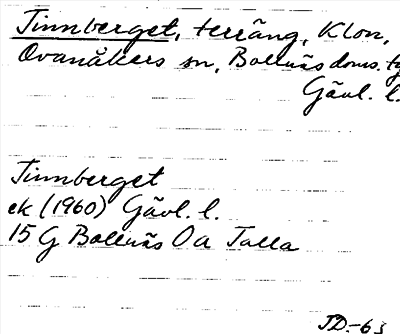 Tinnberget, terräng, Klon,
Ovanåkers sn, Bollnäs doms. tg
Gävl. l.
Tinnberget
ek (1960) Gävl. l.
15 G Bollnäs Oa Talla
JD.-63